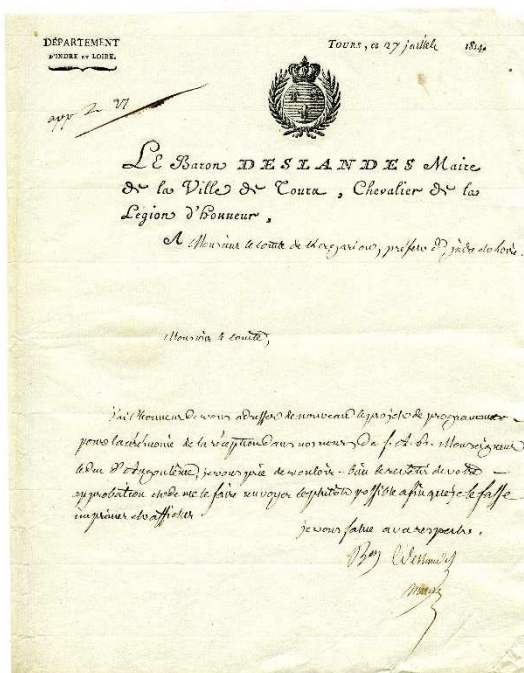 DÉPARTEMENT
D'INDRE ET LOIRE.
TOURS, ce 27 juillet 1814.
app le 27
LE Baron DESLANDES Maire
de la Ville de Tours, Chevalier de la
Légion d'honneur,
A Monsieur le Comte de Kergariou, préfet d'indre et loire.
Monsieur le Comte,
j'ai l'honneur de vous adresser de nouveau le projet de programme
pour la cérémonie de la réception dans nos murs de S. A. R. Monseigneur
le duc d'Angoulême, je vous prie de vouloir bien le revêtir de votre
approbation et de me le faire renvoyer le plutôt possible afin que je le fasse
imprimer et afficher
je vous salue avec respect.
Bon Deslandes